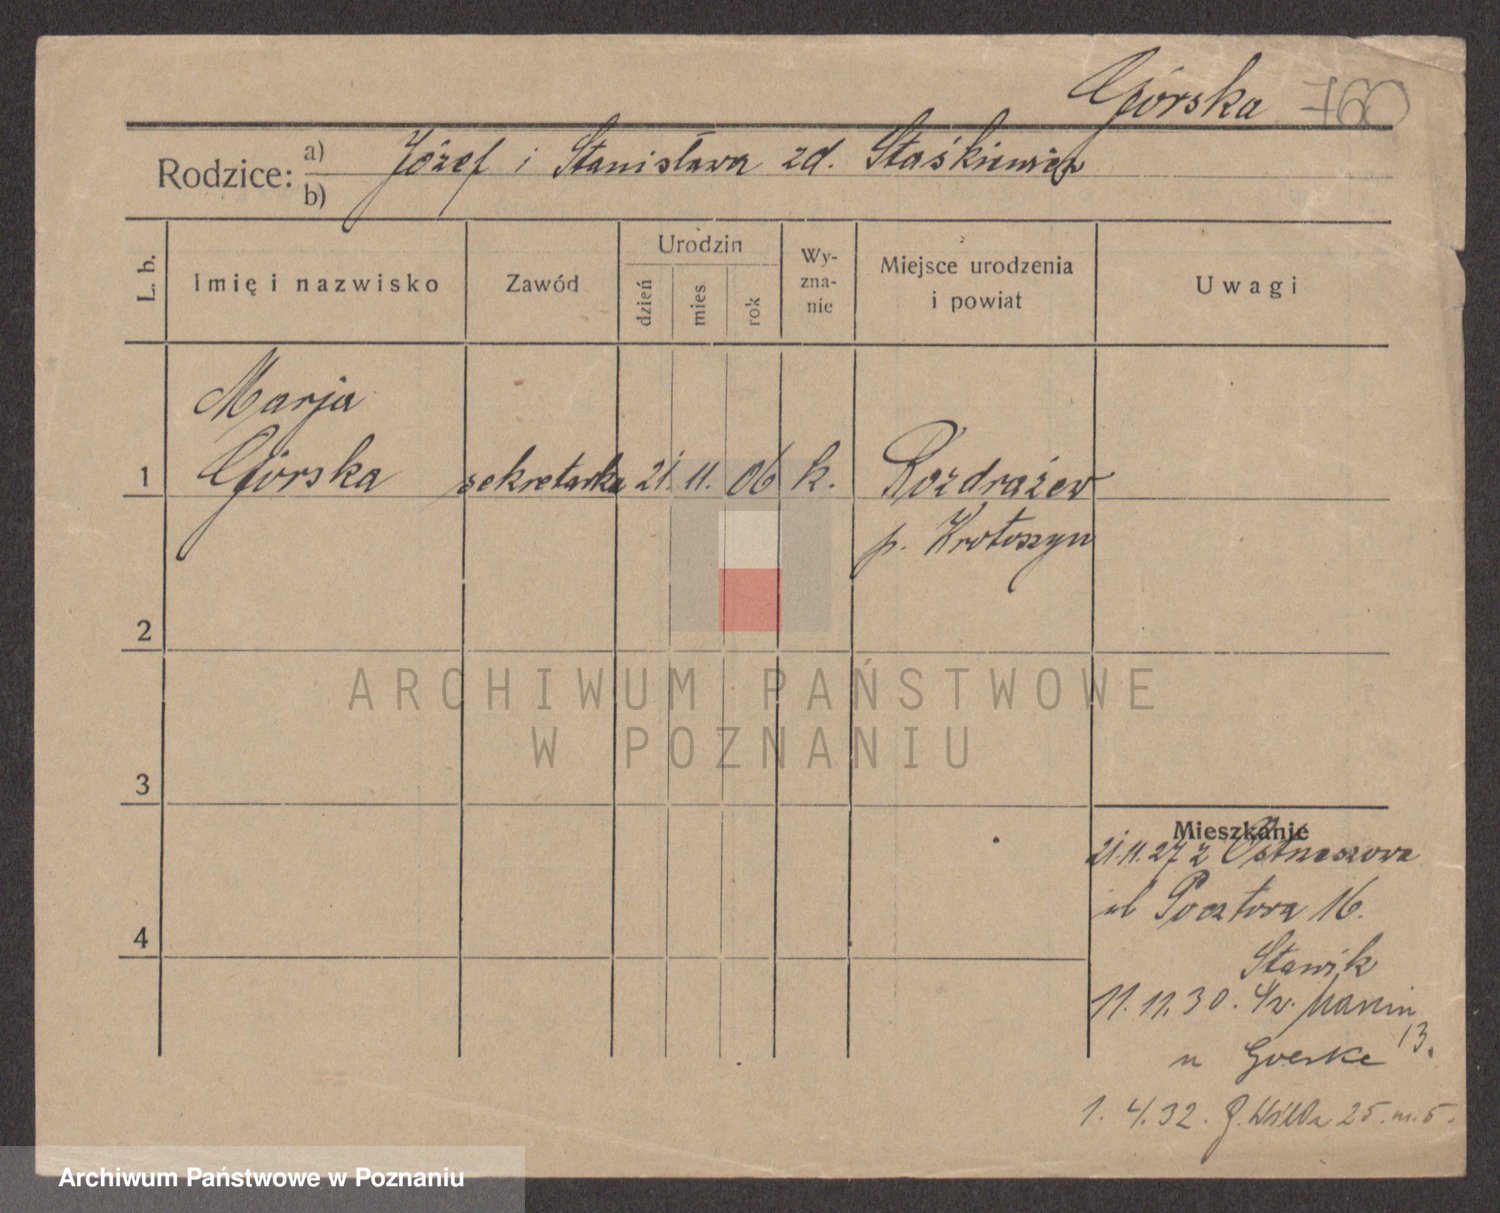 Górska 760
Rodzice: a) Józef i Stanisława zd. Staśkiewicz
b)
L. b. Imię i nazwisko Zawód Urodzin dzień mies rok Wyznanie Miejsce urodzenia i powiat Uwagi
Marja
1 Górska sekretarka 21. 11. 06 k. Rozdrażew
p. Krotoszyn
2
ARCHIWUM PAŃSTWOWE
W POZNANIU
3
Mieszkanie
21.11.27 z
4 ul Pocztowa 16.
Stawik
11.11.30. Św. Marcin
13.
u Goerke
1. 4. 32. G. Wilda 25. m. 5.
Archiwum Państwowe w Poznaniu